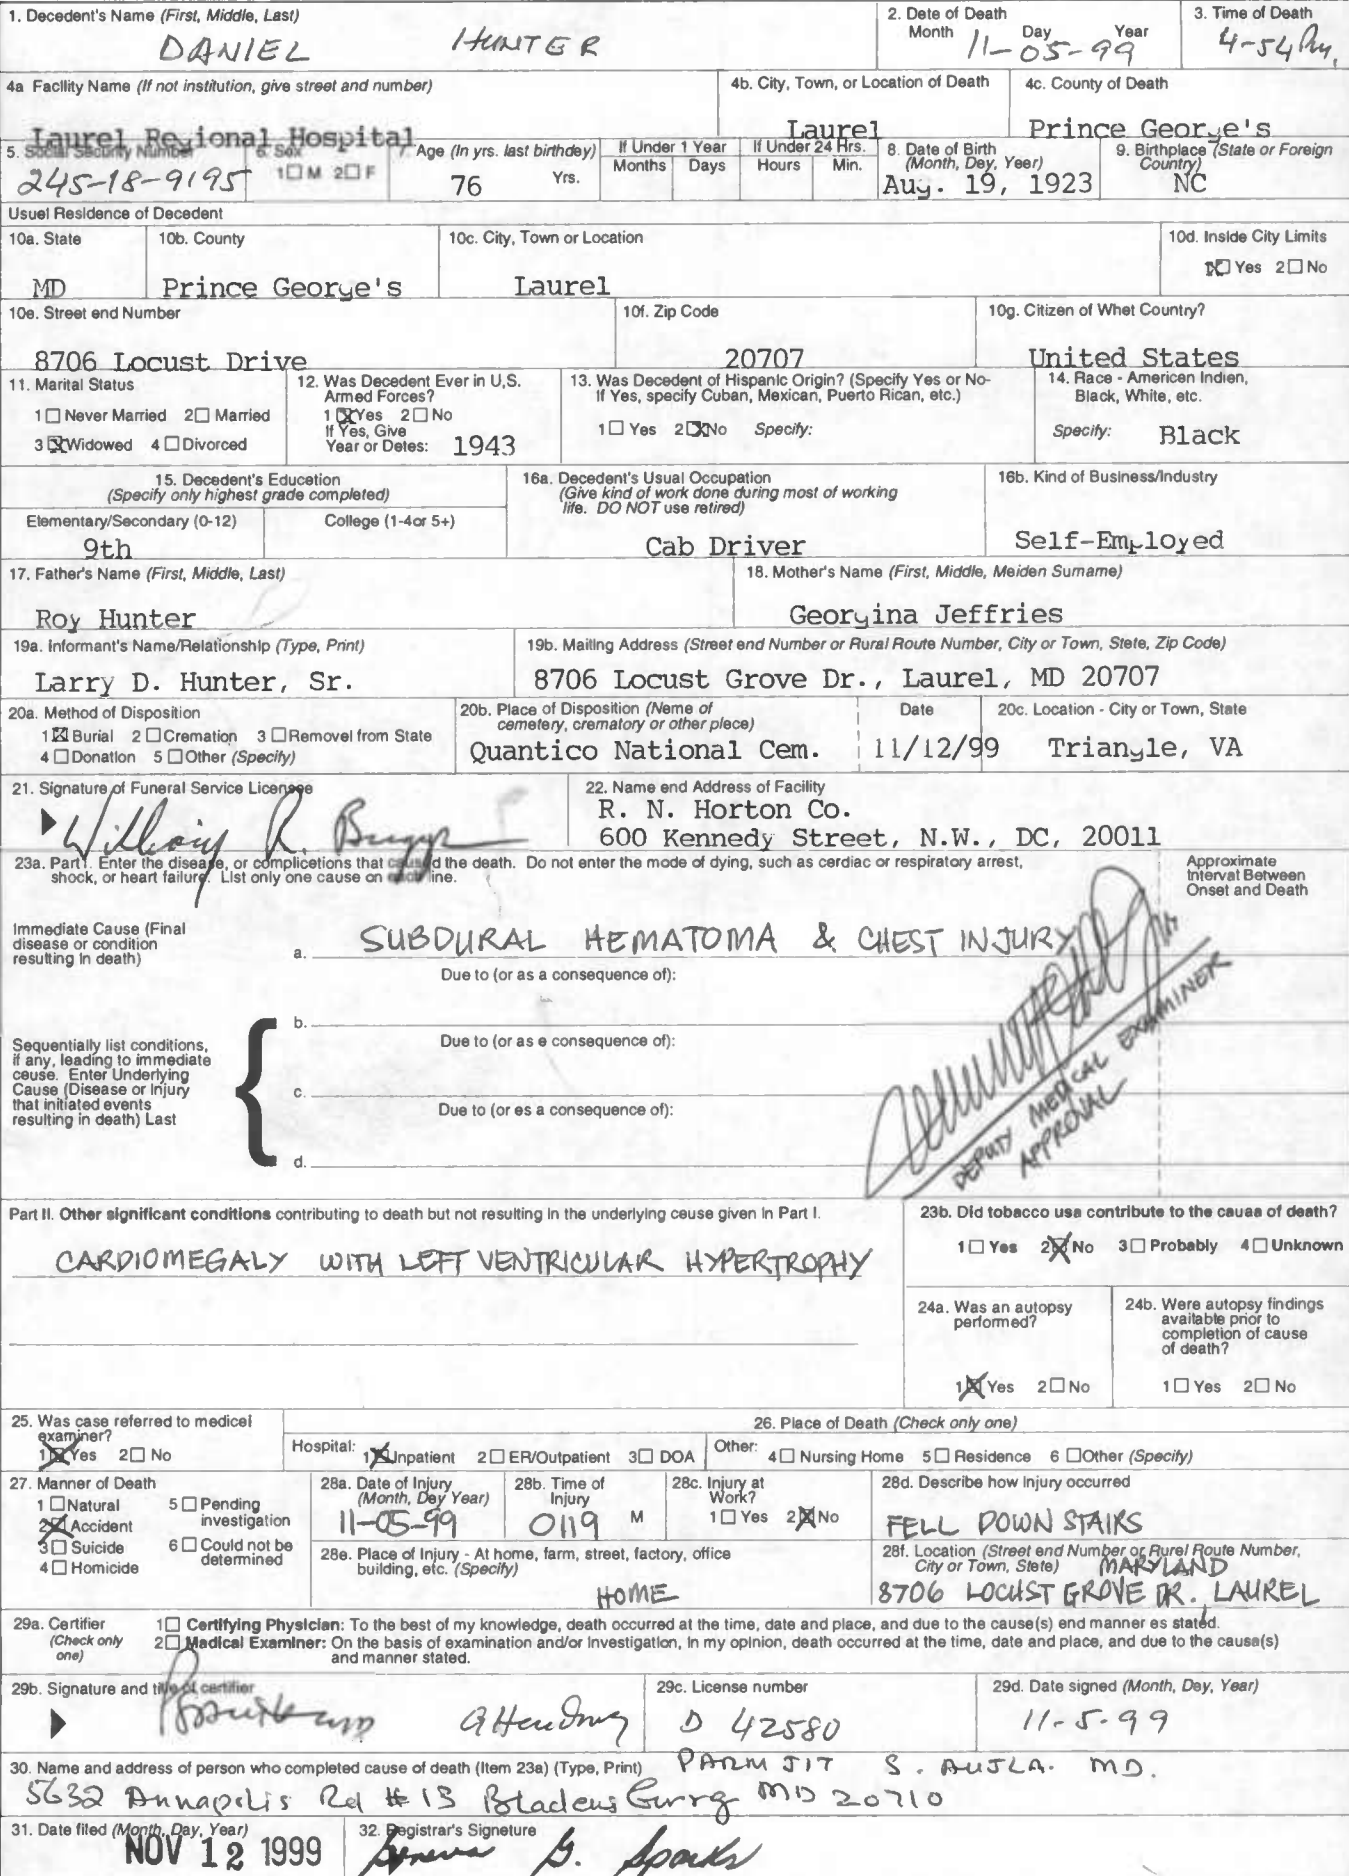 1. Decedent's Name (First, Middle, Last)
DANIEL HUNTER
2. Date of Death
Month Day Year
11-05-99
3. Time of Death
4-54 Pm.
4a Facility Name (If not institution, give street and number)
Laurel Regional Hospital
4b. City, Town, or Location of Death
Laurel
4c. County of Death
Prince George's
5. Social Security Number
245-18-9195
6. Sex
1☐M 2☐F
7. Age (In yrs. last birthday)
76 Yrs.
If Under 1 Year
Months Days
If Under 24 Hrs.
Hours Min.
8. Date of Birth
(Month, Day, Year)
Aug. 19, 1923
9. Birthplace (State or Foreign
Country)
NC
Usual Residence of Decedent
10a. State
MD
10b. County
Prince George's
10c. City, Town or Location
Laurel
10d. Inside City Limits
1☒ Yes 2☐ No
10e. Street and Number
8706 Locust Drive
10f. Zip Code
20707
10g. Citizen of What Country?
United States
11. Marital Status
1☐ Never Married 2☐ Married
3☒ Widowed 4☐ Divorced
12. Was Decedent Ever in U.S.
Armed Forces?
1☒ Yes 2☐ No
If Yes, Give
Year or Dates: 1943
13. Was Decedent of Hispanic Origin? (Specify Yes or No-
If Yes, specify Cuban, Mexican, Puerto Rican, etc.)
1☐ Yes 2☒ No Specify:
14. Race - American Indian,
Black, White, etc.
Specify: Black
15. Decedent's Education
(Specify only highest grade completed)
Elementary/Secondary (0-12) College (1-4or 5+)
9th
16a. Decedent's Usual Occupation
(Give kind of work done during most of working
life. DO NOT use retired)
Cab Driver
16b. Kind of Business/Industry
Self-Employed
17. Father's Name (First, Middle, Last)
Roy Hunter
18. Mother's Name (First, Middle, Maiden Surname)
Georgina Jeffries
19a. Informant's Name/Relationship (Type, Print)
Larry D. Hunter, Sr.
19b. Mailing Address (Street and Number or Rural Route Number, City or Town, State, Zip Code)
8706 Locust Grove Dr., Laurel, MD 20707
20a. Method of Disposition
1☒ Burial 2☐ Cremation 3☐ Removal from State
4☐ Donation 5☐ Other (Specify)
20b. Place of Disposition (Name of
cemetery, crematory or other place)
Quantico National Cem.
Date
11/12/99
20c. Location - City or Town, State
Triangle, VA
21. Signature of Funeral Service Licensee
22. Name and Address of Facility
R. N. Horton Co.
600 Kennedy Street, N.W., DC, 20011
23a. Part I. Enter the disease, or complications that caused the death. Do not enter the mode of dying, such as cardiac or respiratory arrest,
shock, or heart failure. List only one cause on each line.
Approximate
Interval Between
Onset and Death
Immediate Cause (Final
disease or condition
resulting in death)
a. SUBDURAL HEMATOMA & CHEST INJURY
Due to (or as a consequence of):
b.
Due to (or as a consequence of):
c.
Due to (or as a consequence of):
d.
Sequentially list conditions,
if any, leading to immediate
cause. Enter Underlying
Cause (Disease or Injury
that initiated events
resulting in death) Last
DEPUTY MEDICAL EXAMINER
APPROVAL
Part II. Other significant conditions contributing to death but not resulting in the underlying cause given in Part I.
CARDIOMEGALY WITH LEFT VENTRICULAR HYPERTROPHY
23b. Did tobacco use contribute to the cause of death?
1☐ Yes 2☒ No 3☐ Probably 4☐ Unknown
24a. Was an autopsy
performed?
1☒ Yes 2☐ No
24b. Were autopsy findings
available prior to
completion of cause
of death?
1☐ Yes 2☐ No
25. Was case referred to medical
examiner?
1☒ Yes 2☐ No
26. Place of Death (Check only one)
Hospital: 1☒ Inpatient 2☐ ER/Outpatient 3☐ DOA Other: 4☐ Nursing Home 5☐ Residence 6☐ Other (Specify)
27. Manner of Death
1☐ Natural 5☐ Pending
investigation
2☒ Accident
3☐ Suicide 6☐ Could not be
determined
4☐ Homicide
28a. Date of Injury
(Month, Day Year)
11-05-99
28b. Time of
Injury
0119 M
28c. Injury at
Work?
1☐ Yes 2☒ No
28d. Describe how Injury occurred
FELL DOWN STAIRS
28e. Place of Injury - At home, farm, street, factory, office
building, etc. (Specify)
HOME
28f. Location (Street and Number or Rural Route Number,
City or Town, State) MARYLAND
8706 LOCUST GROVE DR. LAUREL
29a. Certifier
(Check only
one)
1☐ Certifying Physician: To the best of my knowledge, death occurred at the time, date and place, and due to the cause(s) and manner as stated.
2☐ Medical Examiner: On the basis of examination and/or investigation, in my opinion, death occurred at the time, date and place, and due to the cause(s)
and manner stated.
29b. Signature and title of certifier
29c. License number
D 42580
29d. Date signed (Month, Day, Year)
11-5-99
30. Name and address of person who completed cause of death (Item 23a) (Type, Print) PARMJIT S. AUJLA. MD.
5632 Annapolis Rd # 13 Bladensburg MD 20710
31. Date filed (Month, Day, Year)
NOV 12 1999
32. Registrar's Signature